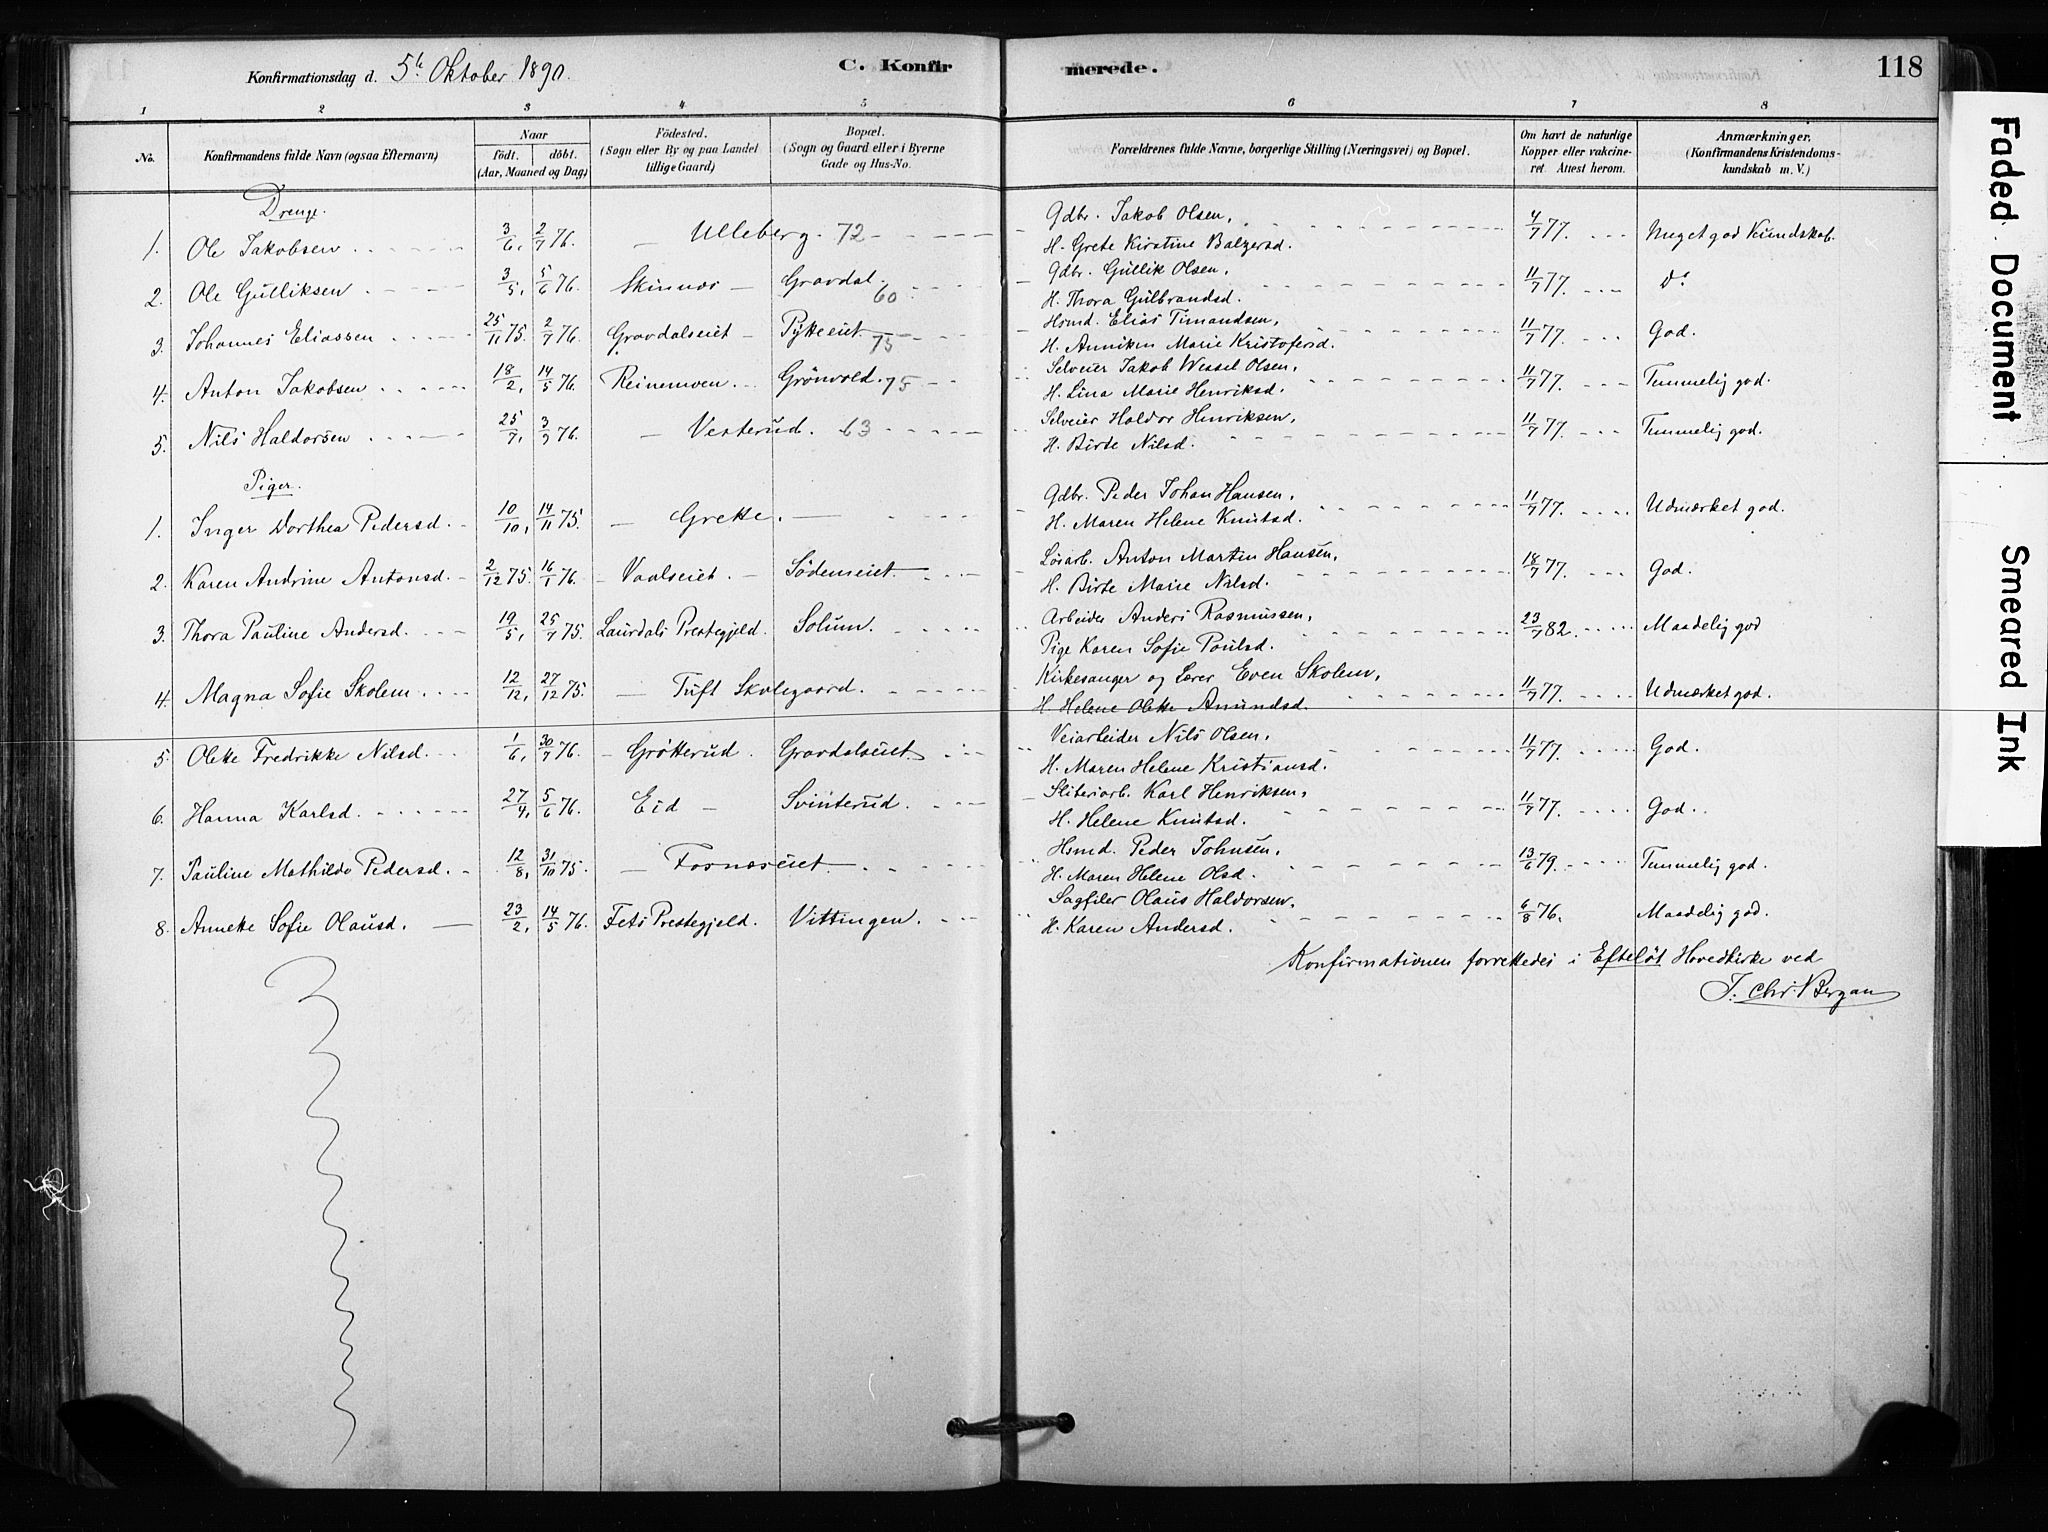 Konfirmationsdag d. 5te Oktober 1890. C. Konfirmerede. 118
1 2 3 4 5 6 7 8
No. Konfirmandens fulde Navn (ogsaa Efternavn) Naar födt. döbt. (Aar, Maaned og Dag) Födested. (Sogn eller By og paa Landet tillige Gaard) Bopæl. (Sogn og Gaard eller i Byerne Gade og Hus-No. Forældrenes fulde Navne, borgerlige Stilling (Næringsvei) og Bopæl. Om havt de naturlige Kopper eller vakcineret. Attest herom. Anmærkninger. (Konfirmandens Kristendomskundskab m. V.)
Drenge.
1. Ole Jakobsen 3/6, 2/7 76. Ulleberg. 72 Gdbr. Jakob Olsen, 4/7 77. Meget god Kundskab.
H. Grete Kirstine Balzersd.
2. Ole Gulliksen 3/5, 5/6 76. Skinnes Gravdal. 60 Gdbr. Gullik Olsen, 11/7 77. do
H. Thora Gulbrandsd.
3. Johannes Eliassen 25/11 75. 2/7 76. Gravdalseiet Pytteeiet 75 Hsmd. Elias Timandsen, 11/7 77. God.
H. Anniken Marie Kristofersd.
4. Anton Jakobsen 18/2, 14/5 76. Reinemoen. Grönvold. 75 Selveier Jakob Wessel Olsen, 11/7 77. Temmelig god.
H. Lina Marie Henriksd.
5. Nils Haldorsen 25/7, 3/9 76. Vesterud. 63 Selveier Haldor Henriksen, 11/7 77. Temmelig god.
H. Birte Nilsd.
Piger.
1. Inger Dorthea Pedersd. 10/10, 14/11 75. Grette. Gdbr. Peder Johan Hansen, 11/7 77. Udmærket god.
H. Maren Helene Knutsd.
2. Karen Andrine Antonsd. 2/12 75. 16/1 76. Vaalseiet. Södemeiet Lösarb. Anton Martin Hansen, 18/7 77. God.
H. Birte Marie Nilsd.
3. Thora Pauline Andersd. 19/5, 25/7 75. Laurdals Prestegjeld. Solum. Arbeider Anders Rasmussen, 23/7 82. Maadelig god
Pige Karen Sofie Poulsd.
4. Magna Sofie Skolem. 12/12, 27/12 75. Tuft Skolegaard. Kirkesanger og Lærer Even Skolem, 11/7 77. Udmærket god.
H. Helene Olette Amundsd.
5. Olette Fredrikke Nilsd. 1/6, 30/7 76. Grötterud. Gravdalseiet Veiarbeider Nils Olsen, 11/7 77. God.
H. Maren Helene Kristiansd.
6. Hanna Karlsd. 27/4, 5/6 76. Eid Svinterud. Sliberiarb. Karl Henriksen, 11/7 77. God.
H. Helene Knutsd.
7. Pauline Mathilde Pedersd. 12/8, 31/10 75. Fosnæseiet Hsmd. Peder Johnsen, 13/6 79. Temmelig god.
H. Maren Helene Olsd.
8. Annette Sofie Olausd. 23/2, 14/5 76. Fets Prestegjeld. Vittingen. Sagfiler Olaus Haldorsen, 6/8 76. Maadelig god.
H. Karen Andersd.
Konfirmationen forrettedes i Efteløt Hovedkirke ved
J. Chr. Bergan
Faded Document
Smeared Ink